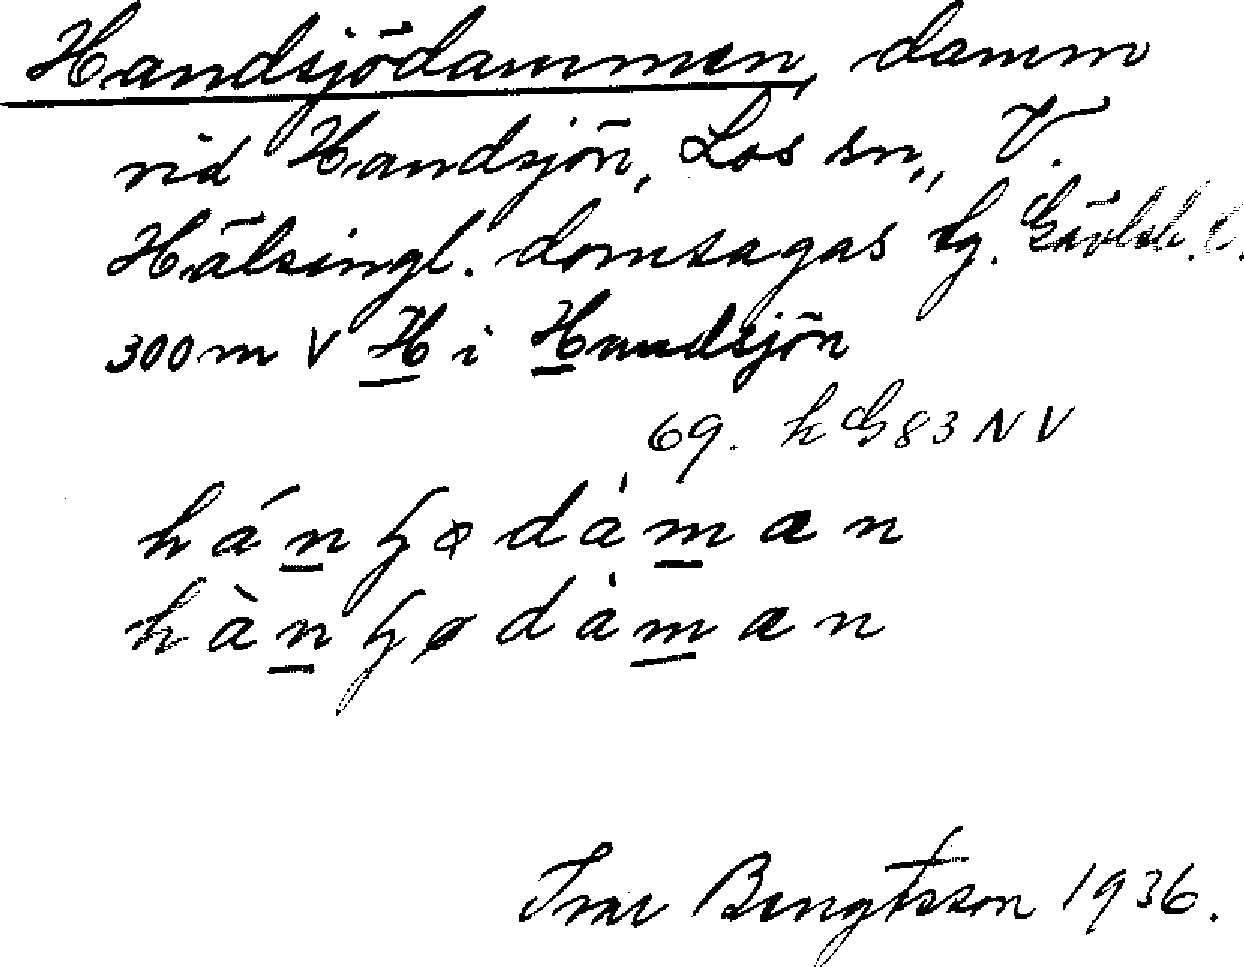 Handsjödammen, damm
vid Handsjön, Los sn, V.
Hälsingl. domsagas tg. Gävleb. l.
300 m V H i Handsjön
69. h G 83 NV
há n ʃ ø dà m a n
hà n ʃ ø dà m a n
Ivar Bengtsson 1936.